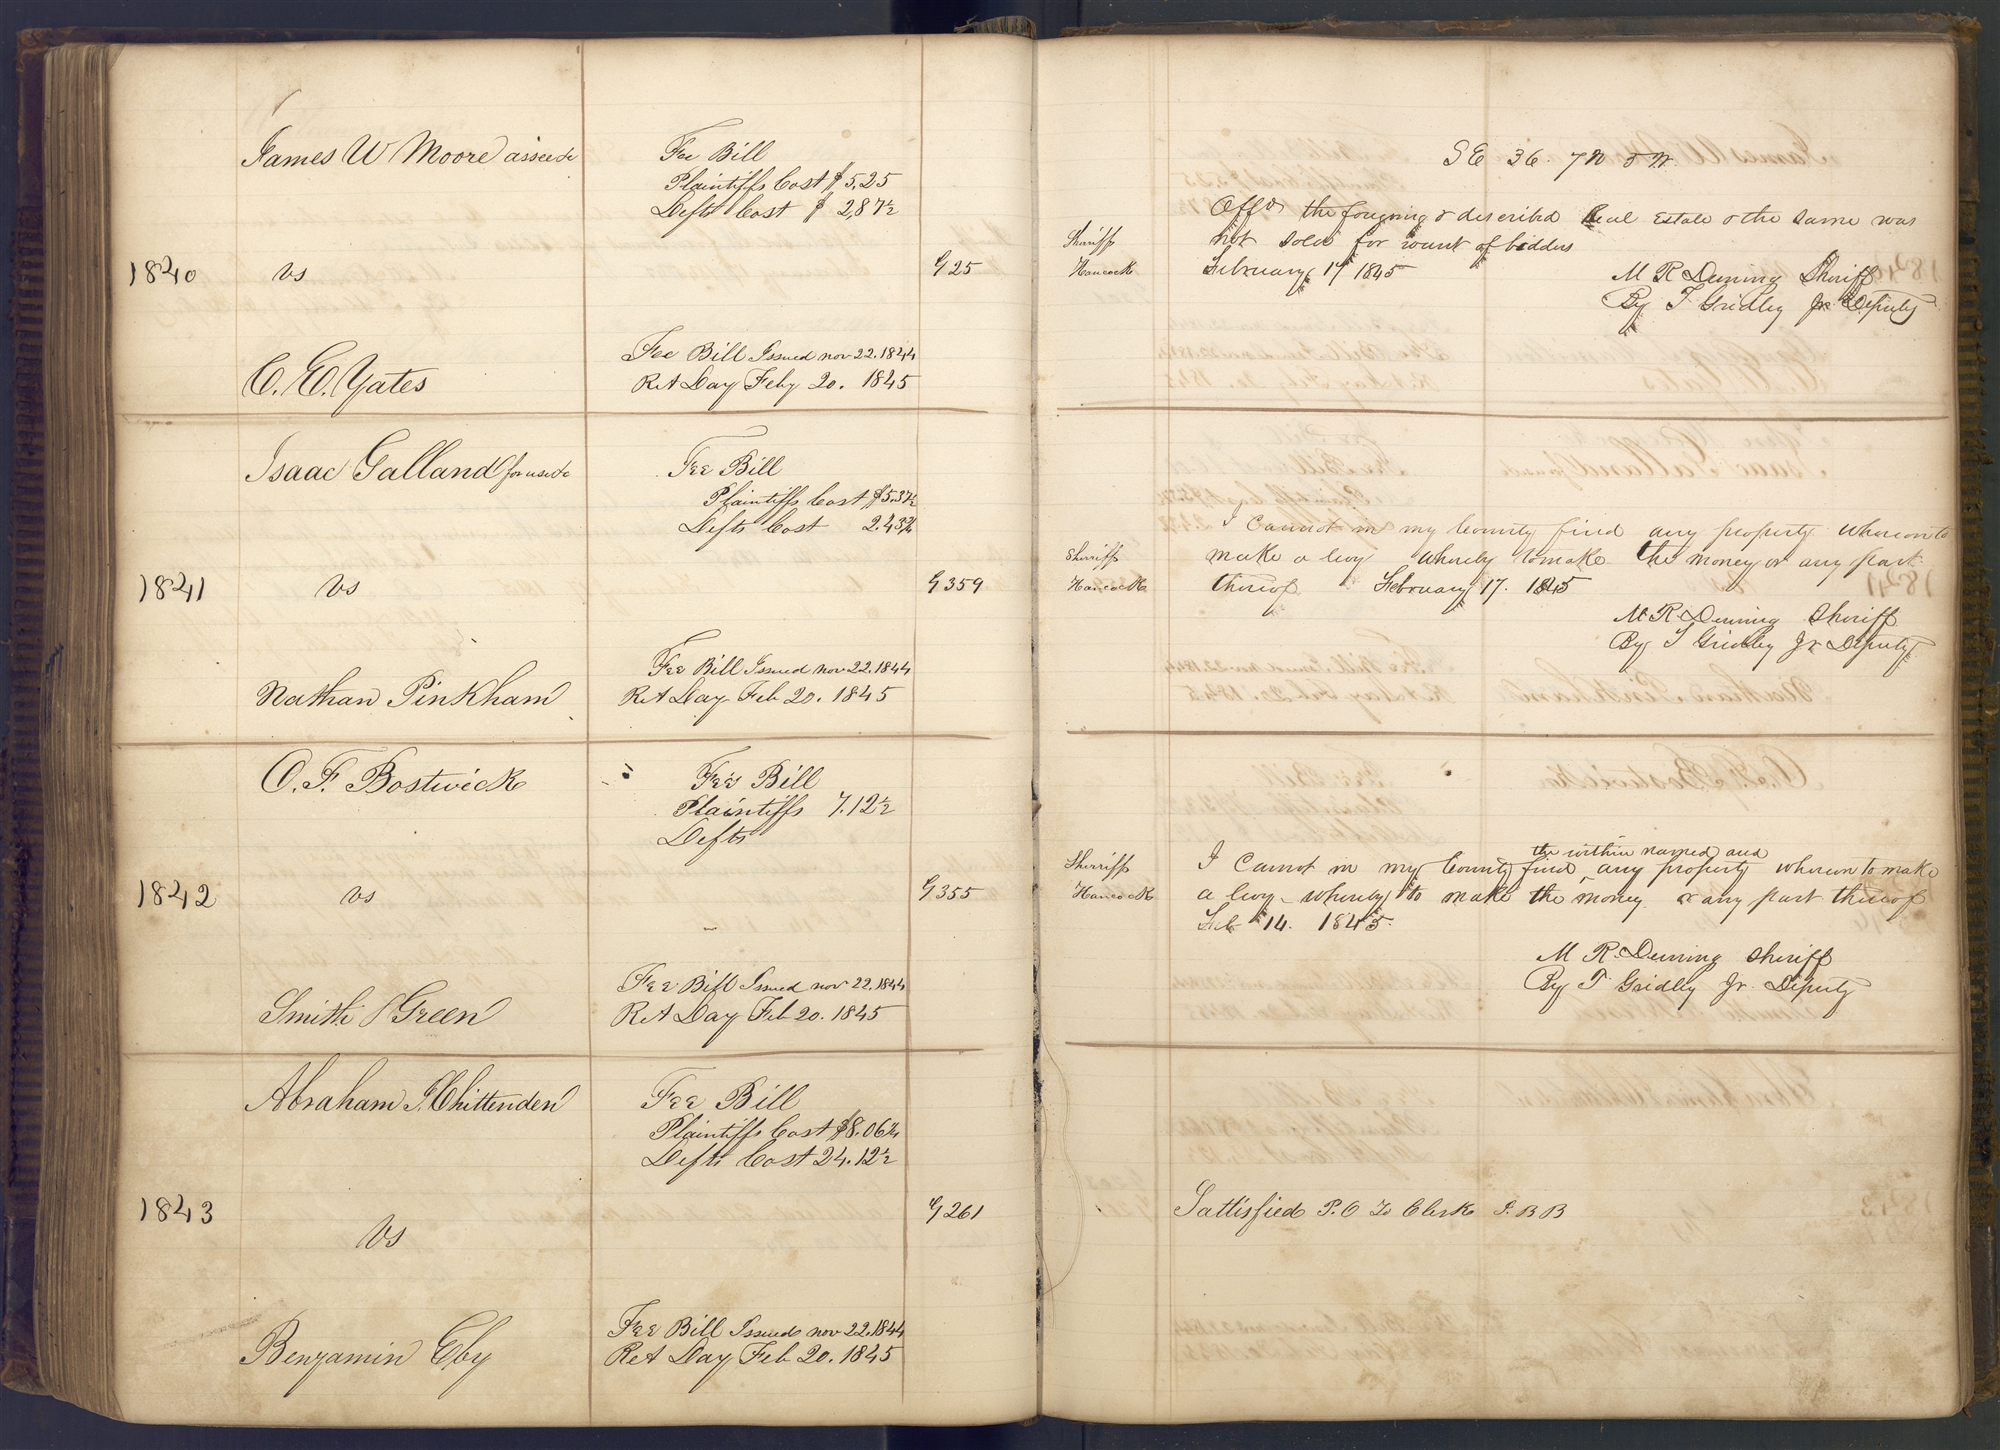 James W Moore assee &c
Fee Bill
Plaintiffs Cost $5,25
Defts Cost $ 2,87½
1840
vs
G 25
Fee Bill Issued nov 22. 1844
C. E. Yates
Ret Day Feby 20. 1845
Isaac Galland for use &c
Fee Bill
Plaintiffs Cost $5.37½
Defts Cost 2.43¾
1841
vs
G 359
Fee Bill Issued nov 22. 1844
Nathan Pinkham
Ret Day Feb 20. 1845
O. F. Bostwick
Fee Bill
Plaintiffs 7.12½
Defts
1842
vs
G 355
Fee Bill Issued nov 22. 1844
Smith & Green
Ret Day Feb 20. 1845
Abraham I. Chittenden
Fee Bill
Plaintiffs Cost $8.06¼
Defts Cost 24.12½
1843
G 261
Vs
Fee Bill Issued nov 22. 1844
Benjamin Eby
Ret Day Feb 20. 1845
S E 36. 7 N 5 W.
Offd the forgoing & describd Real Estate & the same was
Sheriff
not sold for want of bidders
Hancock
February 17 1845
M R Deming Sheriff
By T Gridley Jr Deputy
I Cannot in my County find any property whereon to
Sheriff
make a levy whereby to make the money or any part
Hancock
thereof February 17. 1845
M R Deming Sheriff
By T Gridley Jr Deputy
the within named and
Sherriff
I Cannot in my County find ‸ any property whereon to make
Hancock
a levy whereby to make the money or any part thereof
Feb 14. 1845.
M R Deming Sheriff
By T Gridley Jr. Deputy
Sattisfied P.O To Clerk J. B B